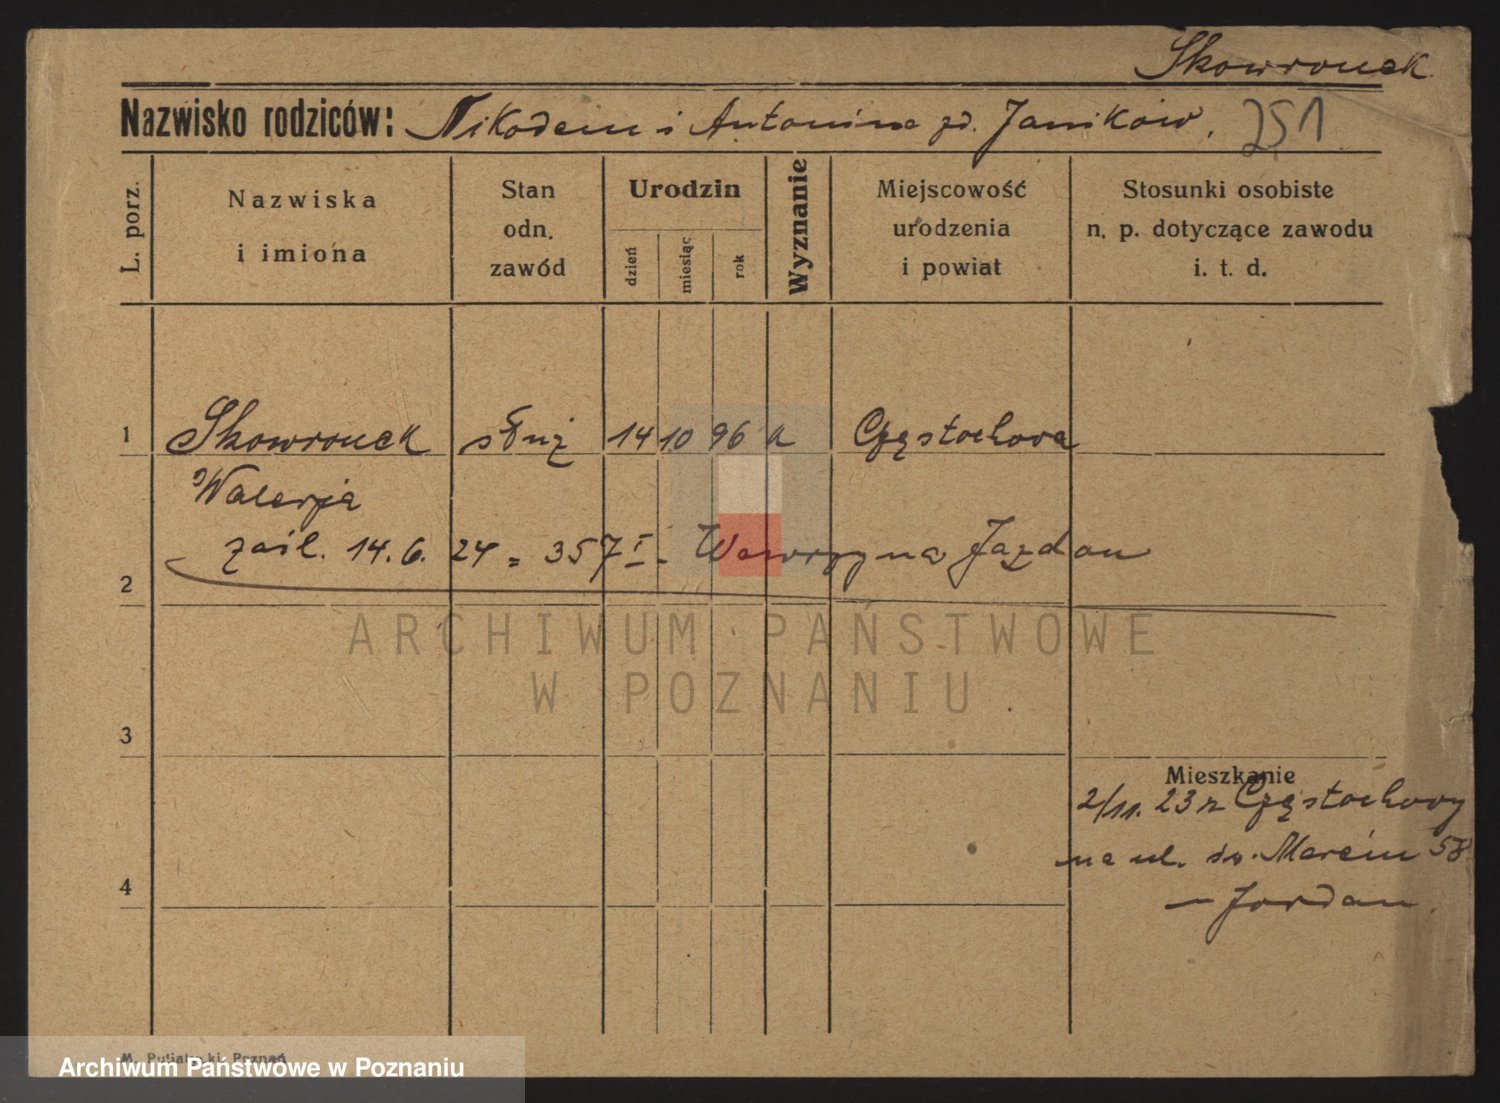 Skowronek
Nazwisko rodziców: Nikodem i Antonina zd. Janików. 251
L. porz.
Nazwiska
i imiona
Stan
odn.
zawód
Urodzin
dzień
miesiąc
rok
Wyznanie
Miejscowość
urodzenia
i powiat
Stosunki osobiste
n. p. dotyczące zawodu
i. t. d.
1 Skowronek służ 14 10 96 k Częstochowa
Walerja
zaśl. 14. 6. 24 = 357 I - Wawrzyna Jazdon
2
ARCHIWUM PAŃSTWOWE
W POZNANIU
3
Mieszkanie
2/11. 23 z Częstochowy
na ul. św. Marcin 58
4
— Jordan.
Poznań
Archiwum Państwowe w Poznaniu